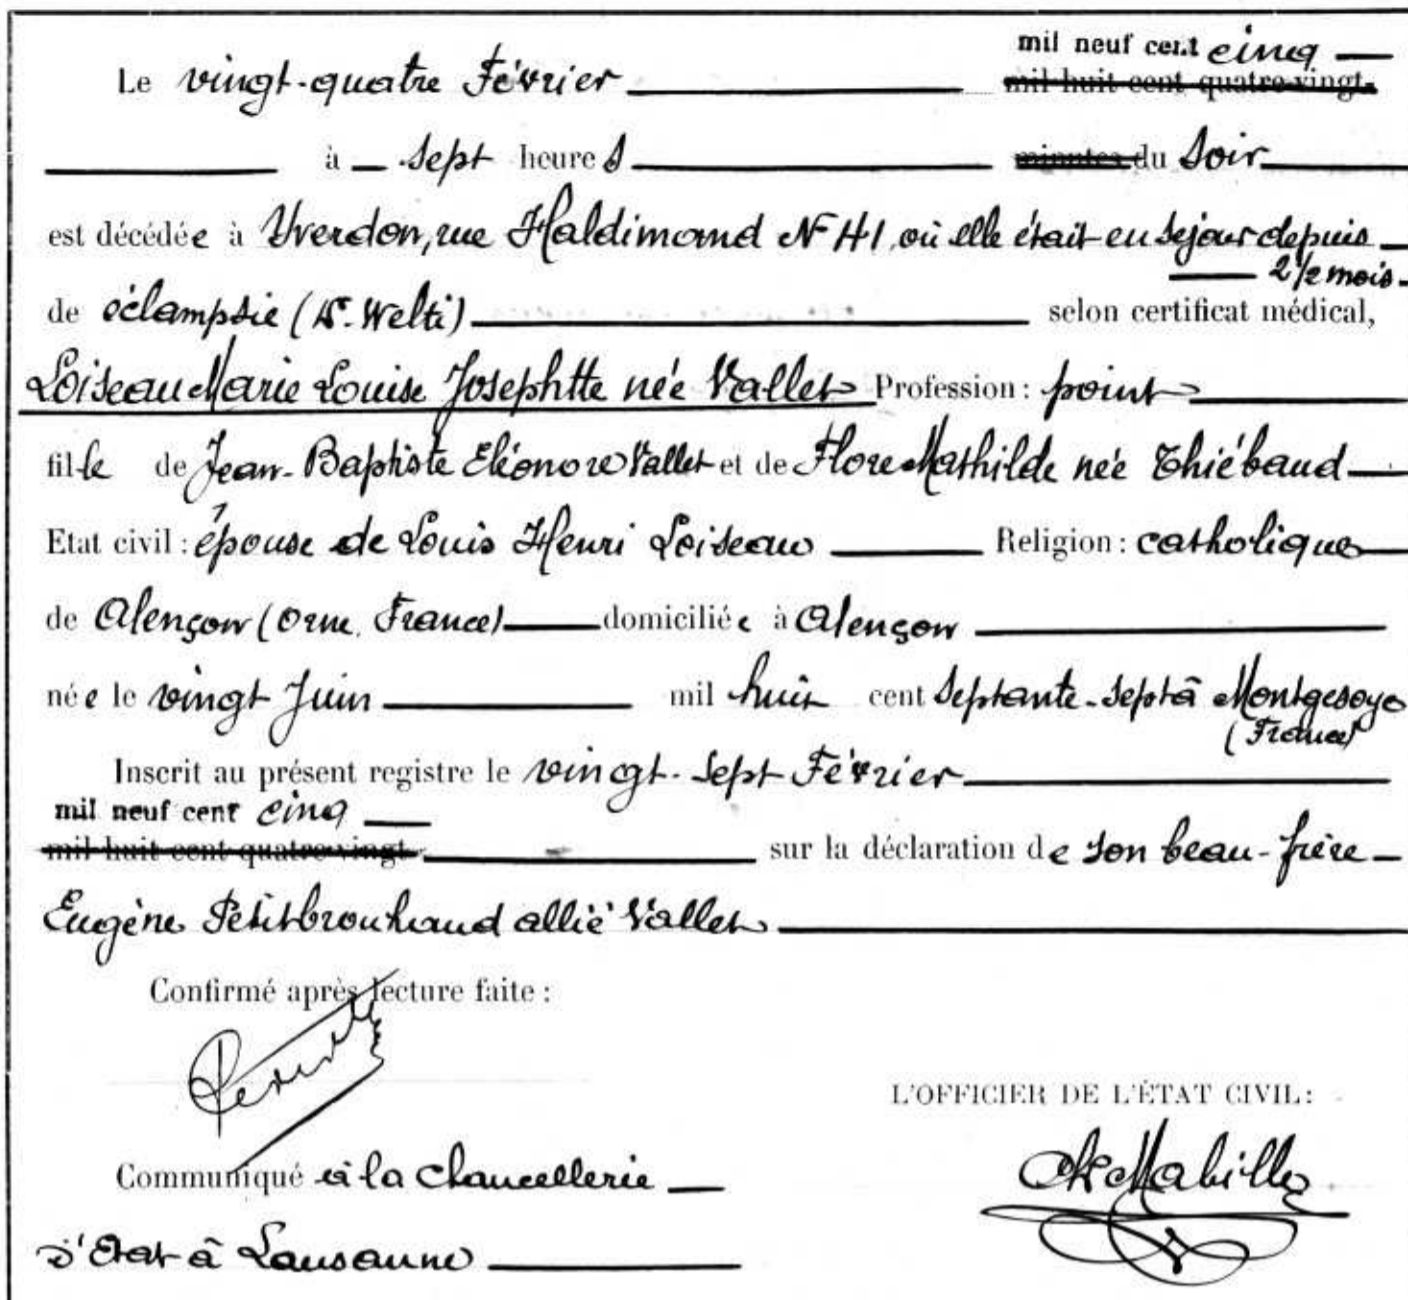 mil neuf cent cinq
Le vingt-quatre Février mil huit cent quatre-vingt-
à sept heures minutes du soir
est décédée à Yverdon, rue Haldimand N° 41, où elle était en séjour depuis
2 1/2 mois
de éclampsie (Dr. Welti) selon certificat médical,
Loiseau Marie Louise Josephtte née Vallet Profession : point
fille de Jean-Baptiste Eléonore Vallet et de Flore Mathilde née Thiébaud
Etat civil : épouse de Louis Henri Loiseau Religion : catholique
de Alençon (Orne, France) domiciliée à Alençon
née le vingt Juin mil huit cent septante-sept à Montgesoye
(France)
Inscrit au présent registre le vingt-sept Février
mil neuf cent cinq
mil huit cent quatre-vingt- sur la déclaration de son beau-frère
Eugène allié Vallet
Confirmé après lecture faite :
L'OFFICIER DE L'ÉTAT CIVIL :
Mabille
Communiqué à la Chancellerie
d'Etat à Lausanne